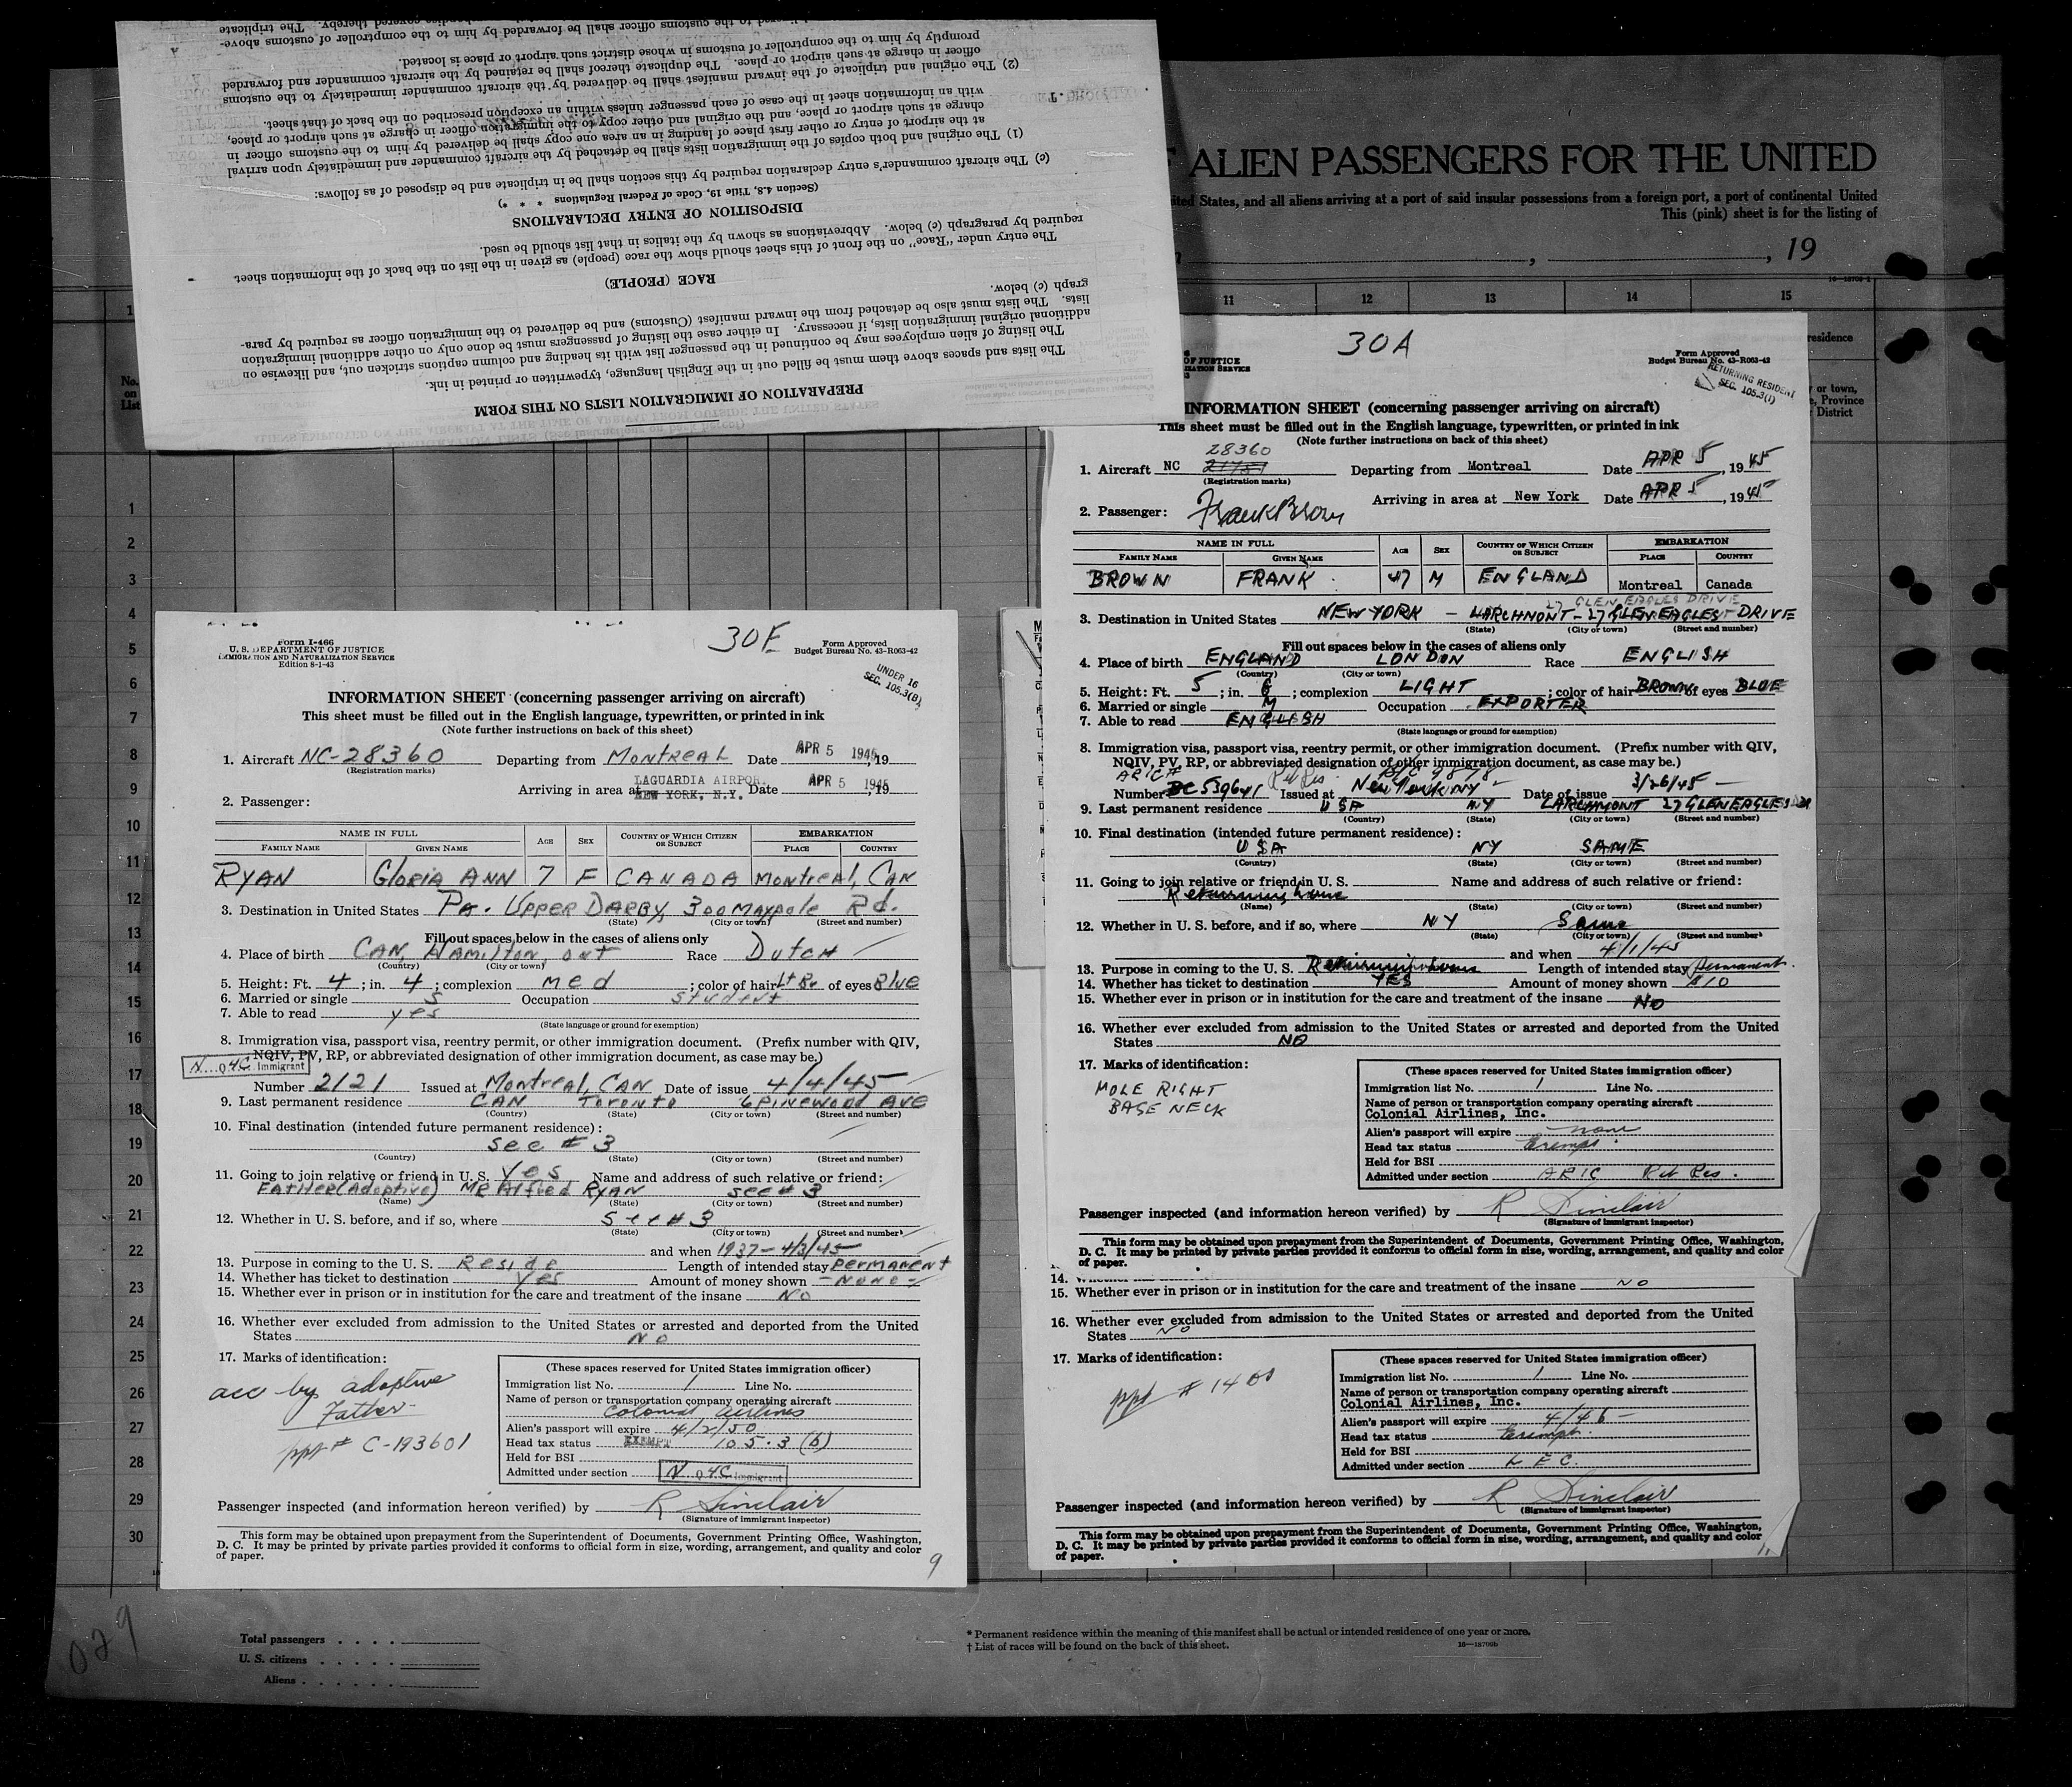 promptly by him to the comptroller of customs in whose district such airport or place is located.
officer in charge at such airport or place. The duplicate thereof shall be retained by the aircraft commander and forwarded
(2) The original and triplicate of the inward manifest shall be delivered by the aircraft commander immediately to the customs
with an information sheet in the case of each passenger unless within an exception prescribed on the back of that sheet.
charge at such airport or place, and the original and other copy to the immigration officer in charge at such airport or place,
at the airport of entry or other first place of landing in an area one copy shall be delivered by him to the customs officer in
(1) The original and both copies of the immigration lists shall be detached by the aircraft commander and immediately upon arrival
(c) The aircraft commander's entry declaration required by this section shall be in triplicate and be disposed of as follows:
(Section 4.8, Title 19, Code of Federal Regulations * * *)
DISPOSITION OF ENTRY DECLARATIONS
required by paragraph (c) below. Abbreviations as shown by the italics in that list should be used.
The entry under "Race" on the front of this sheet should show the race (people) as given in the list on the back of the information sheet
RACE (PEOPLE)
graph (c) below.
lists. The lists must also be detached from the inward manifest (Customs) and be delivered to the immigration officer as required by para-
additional original immigration lists, if necessary. In either case the listing of passengers must be done only on other additional immigration
The listing of alien employees may be continued in the passenger list with its heading and column captions stricken out, and likewise on
The lists and spaces above them must be filled out in the English language, typewritten or printed in ink.
PREPARATION OF IMMIGRATION LISTS ON THIS FORM
ALIEN PASSENGERS FOR THE UNITED
ited States, and all aliens arriving at a port of said insular possessions from a foreign port, a port of continental United
This (pink) sheet is for the listing of
, 19
11 12 13 14 15
residence
or town,
Province
District
No.
on
List
1
2
3
4
5
6
7
8
9
10
11
12
13
14
15
16
17
18
19
20
21
22
23
24
25
26
27
28
29
30
Form I-466
U. S. DEPARTMENT OF JUSTICE
IMMIGRATION AND NATURALIZATION SERVICE
Edition 8-1-43
30E
Form Approved
Budget Bureau No. 43-R063-42
UNDER 16
SEC. 105.3(B)
INFORMATION SHEET (concerning passenger arriving on aircraft)
This sheet must be filled out in the English language, typewritten, or printed in ink
(Note further instructions on back of this sheet)
1. Aircraft NC-28360 Departing from MONTREAL Date APR 5 1945, 19
(Registration marks)
Arriving in area at LAGUARDIA AIRPOR. NEW YORK, N.Y. Date APR 5 1945, 19
2. Passenger:
NAME IN FULL AGE SEX COUNTRY OF WHICH CITIZEN OR SUBJECT EMBARKATION
FAMILY NAME GIVEN NAME PLACE COUNTRY
RYAN GLORIA ANN 7 F CANADA Montreal, CAN
3. Destination in United States PA. UPPER DARBY, 300 Maypole Rd.
(State) (City or town) (Street and number)
Fill out spaces below in the cases of aliens only
4. Place of birth CAN, HAMILTON, ONT Race DUTCH
(Country) (City or town)
5. Height: Ft. 4 ; in. 4 ; complexion med ; color of hair Lt Br of eyes Blue
6. Married or single S Occupation student
7. Able to read yes
(State language or ground for exemption)
8. Immigration visa, passport visa, reentry permit, or other immigration document. (Prefix number with QIV,
NQIV, PV, RP, or abbreviated designation of other immigration document, as case may be.)
N 04C Immigrant
Number 2121 Issued at Montreal, CAN Date of issue 4/4/45
9. Last permanent residence CAN Toronto 6 PINEWOOD AVE
(Country) (State) (City or town) (Street and number)
10. Final destination (intended future permanent residence):
see # 3
(Country) (State) (City or town) (Street and number)
11. Going to join relative or friend in U. S. Yes Name and address of such relative or friend:
FATHER (Adoptive) MR Alfred RYAN see # 3
(Name) (State) (City or town) (Street and number)
12. Whether in U. S. before, and if so, where See # 3
(State) (City or town) (Street and number)
and when 1937 - 4/3/45
13. Purpose in coming to the U. S. Reside Length of intended stay permanent
14. Whether has ticket to destination Yes Amount of money shown - NONE -
15. Whether ever in prison or in institution for the care and treatment of the insane No
16. Whether ever excluded from admission to the United States or arrested and deported from the United
States No
17. Marks of identification:
acc by adoptive
Father
ppt # C-193601
(These spaces reserved for United States immigration officer)
Immigration list No. 1 Line No.
Name of person or transportation company operating aircraft
Colonial Airlines
Alien's passport will expire 4/2/50
Head tax status EXEMPT 105.3 (b)
Held for BSI
Admitted under section N 04C Immigrant
Passenger inspected (and information hereon verified) by R Sinclair
(Signature of immigrant inspector)
This form may be obtained upon prepayment from the Superintendent of Documents, Government Printing Office, Washington,
D. C. It may be printed by private parties provided it conforms to official form in size, wording, arrangement, and quality and color
of paper.
9
30A
OF JUSTICE
IZATION SERVICE
Form Approved
Budget Bureau No. 43-R063-42
RETURNING RESIDENT
SEC. 105.3(I)
INFORMATION SHEET (concerning passenger arriving on aircraft)
This sheet must be filled out in the English language, typewritten, or printed in ink
(Note further instructions on back of this sheet)
28360
1. Aircraft NC Departing from Montreal Date APR 5, 1945
(Registration marks)
Arriving in area at New York Date APR 5, 1945
2. Passenger: Frank Brown
NAME IN FULL AGE SEX COUNTRY OF WHICH CITIZEN OR SUBJECT EMBARKATION
FAMILY NAME GIVEN NAME PLACE COUNTRY
BROWN FRANK 47 M ENGLAND Montreal Canada
27 GLEN EAGLES DRIVE
3. Destination in United States NEW YORK - LARCHMONT - 27 GLEN EAGLES DRIVE
(State) (City or town) (Street and number)
Fill out spaces below in the cases of aliens only
4. Place of birth ENGLAND LONDON Race ENGLISH
(Country) (City or town)
5. Height: Ft. 5 ; in. 6 ; complexion LIGHT ; color of hair BROWN of eyes BLUE
6. Married or single M Occupation EXPORTER
7. Able to read ENGLISH
(State language or ground for exemption)
8. Immigration visa, passport visa, reentry permit, or other immigration document. (Prefix number with QIV,
NQIV, PV, RP, or abbreviated designation of other immigration document, as case may be.)
ARIC# Ret Res. 9878
Number 539641 Issued at New York NY Date of issue 3/26/45 -
9. Last permanent residence USA NY LARCHMONT 27 GLEN EAGLES DR
(Country) (State) (City or town) (Street and number)
10. Final destination (intended future permanent residence):
USA NY SAME
(Country) (State) (City or town) (Street and number)
11. Going to join relative or friend in U. S. Name and address of such relative or friend:
Returning home
(Name) (State) (City or town) (Street and number)
12. Whether in U. S. before, and if so, where NY Same
(State) (City or town) (Street and number)
and when 4/1/45
13. Purpose in coming to the U. S. Returning home Length of intended stay Permanent.
14. Whether has ticket to destination YES Amount of money shown $10
15. Whether ever in prison or in institution for the care and treatment of the insane NO
16. Whether ever excluded from admission to the United States or arrested and deported from the United
States NO
17. Marks of identification:
MOLE RIGHT
BASE NECK
(These spaces reserved for United States immigration officer)
Immigration list No. 1 Line No.
Name of person or transportation company operating aircraft
Colonial Airlines, Inc.
Alien's passport will expire none
Head tax status Exempt.
Held for BSI
Admitted under section ARIC Ret Res.
Passenger inspected (and information hereon verified) by R Sinclair
(Signature of immigrant inspector)
This form may be obtained upon prepayment from the Superintendent of Documents, Government Printing Office, Washington,
D. C. It may be printed by private parties provided it conforms to official form in size, wording, arrangement, and quality and color
of paper.
14.
15. Whether ever in prison or in institution for the care and treatment of the insane NO
16. Whether ever excluded from admission to the United States or arrested and deported from the United
States NO
17. Marks of identification:
ppt # 14
(These spaces reserved for United States immigration officer)
Immigration list No. 1 Line No.
Name of person or transportation company operating aircraft
Colonial Airlines, Inc.
Alien's passport will expire 4/46 -
Head tax status Exempt.
Held for BSI
Admitted under section
Passenger inspected (and information hereon verified) by R Sinclair
(Signature of immigrant inspector)
This form may be obtained upon prepayment from the Superintendent of Documents, Government Printing Office, Washington,
D. C. It may be printed by private parties provided it conforms to official form in size, wording, arrangement, and quality and color
of paper.
029
Total passengers . . . .
U. S. citizens . . . . .
Aliens . . . . . . .
* Permanent residence within the meaning of this manifest shall be actual or intended residence of one year or more.
† List of races will be found on the back of this sheet.
16—18709b